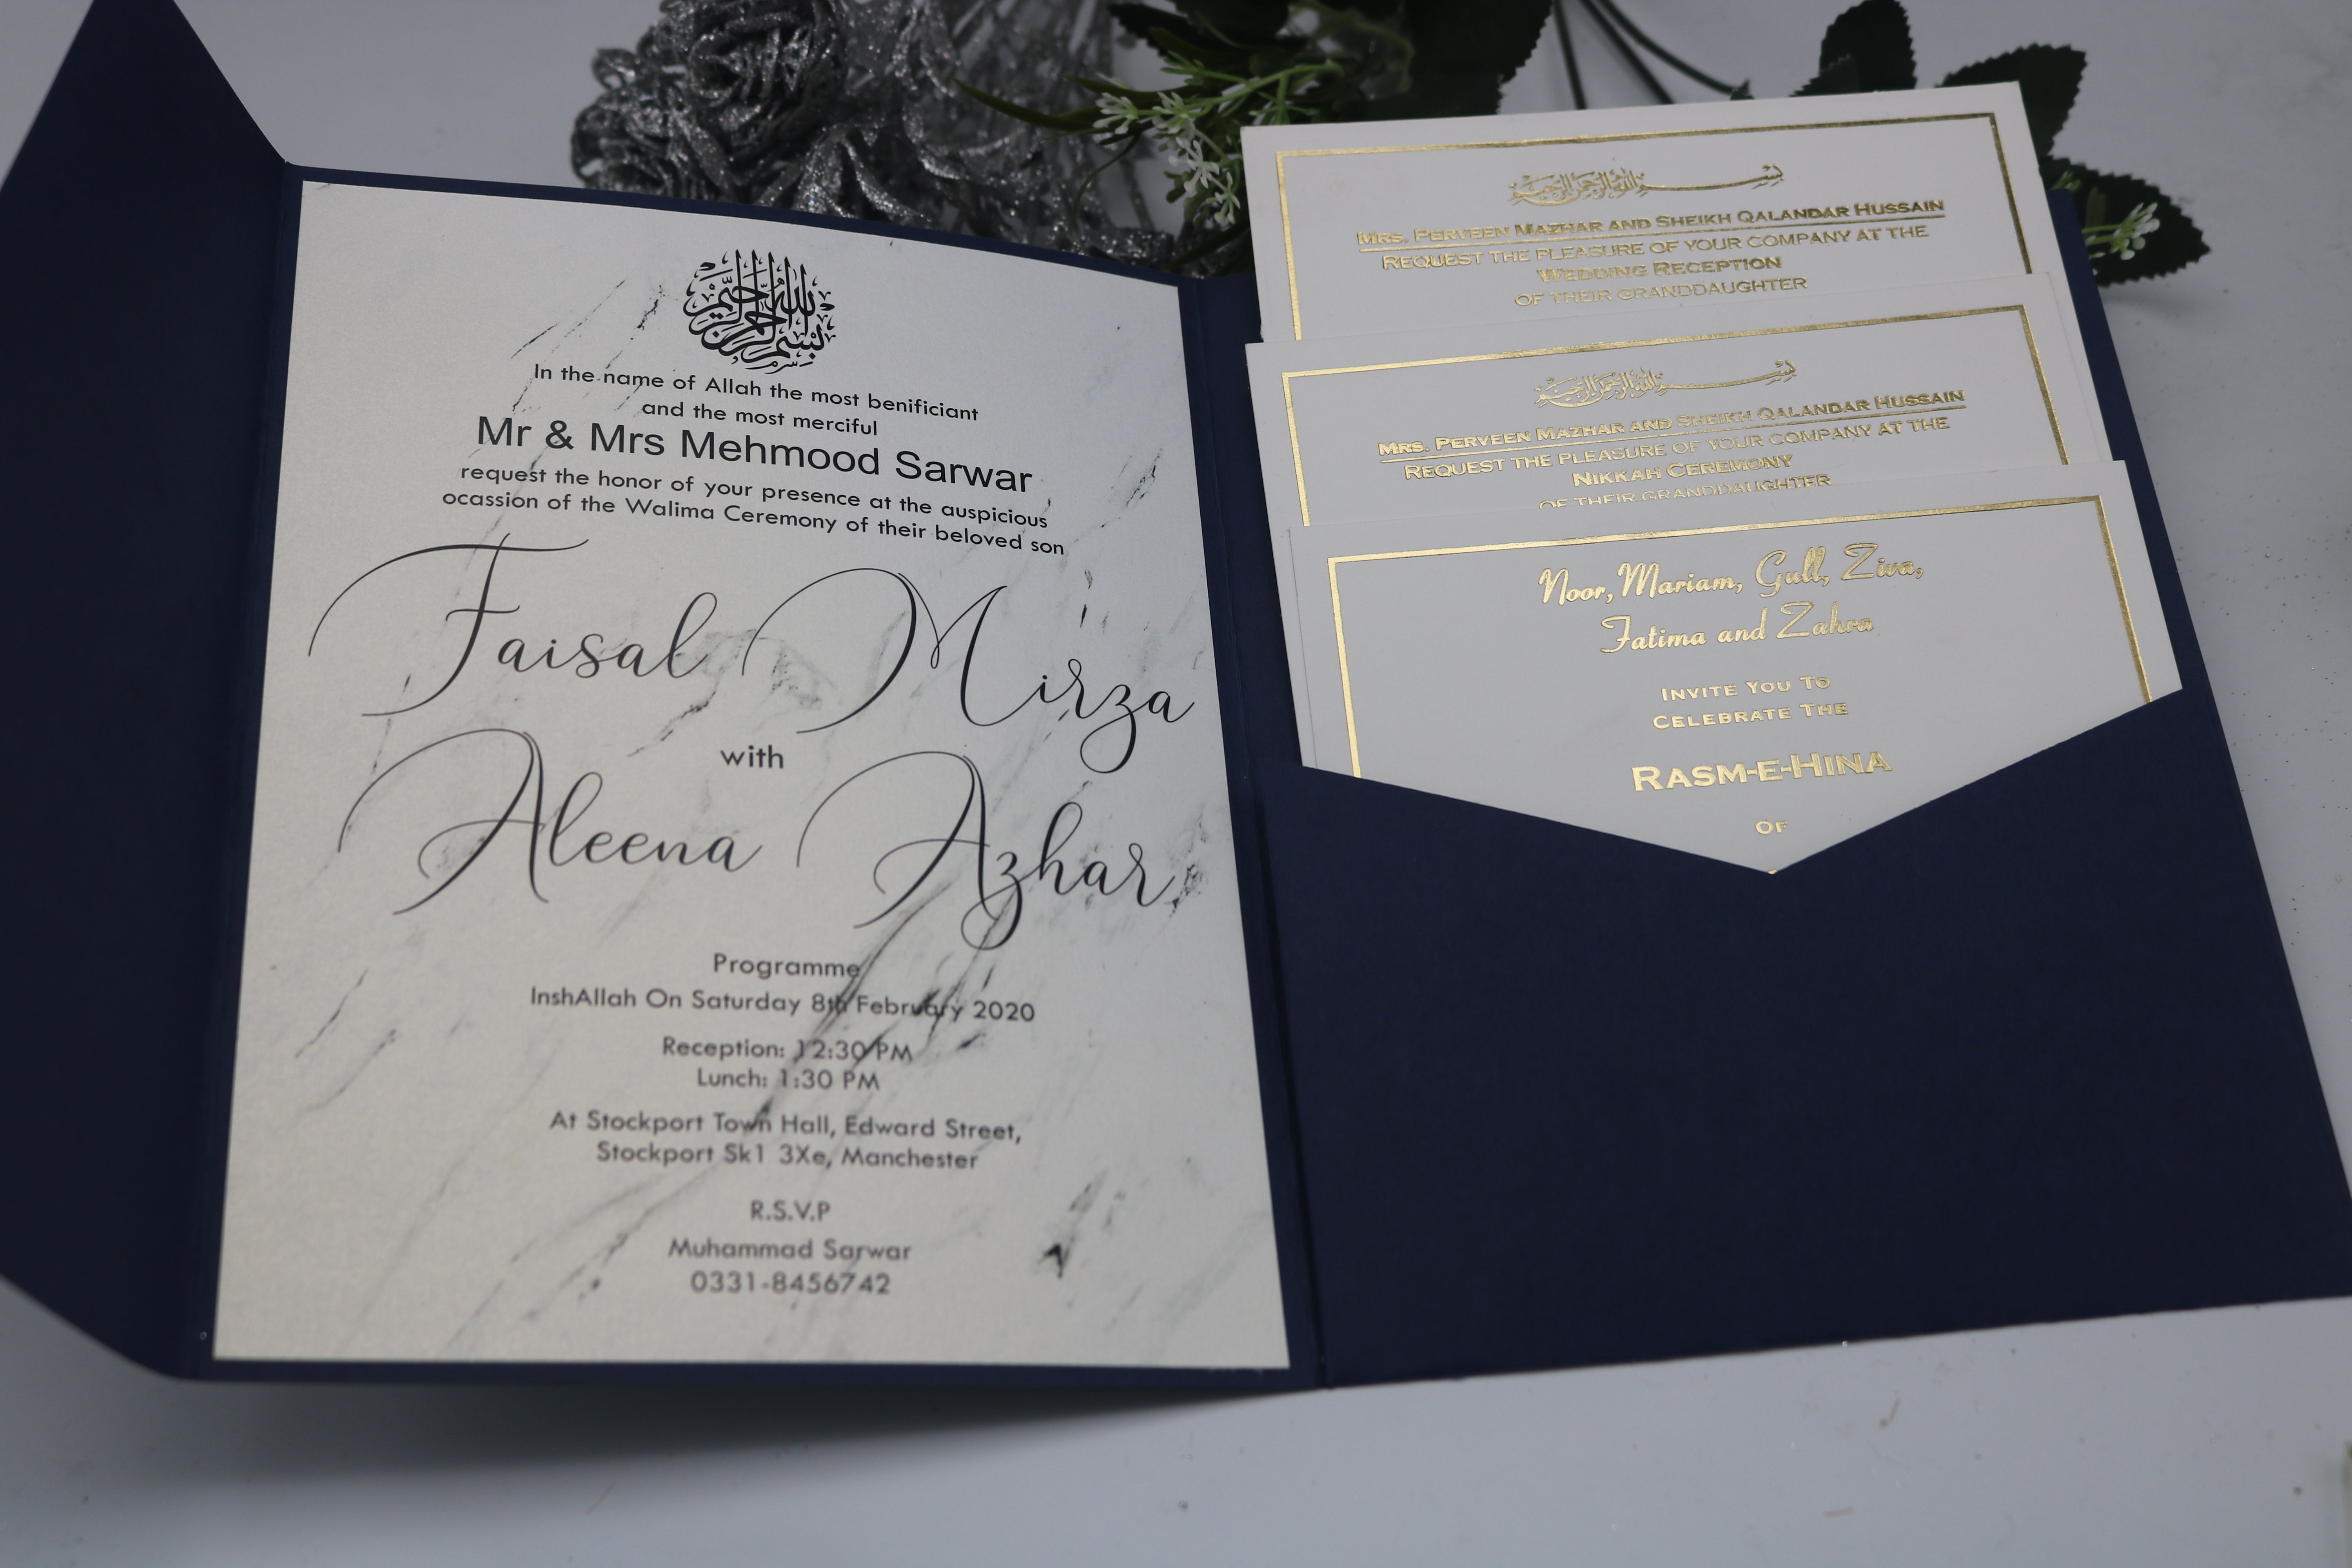 بسم الله الرحمن الرحيم
In the name of Allah the most benificiant
and the most merciful
Mr & Mrs Mehmood Sarwar
request the honor of your presence at the auspicious
ocassion of the Walima Ceremony of their beloved son
Faisal Mirza
with
Aleena Azhar
Programme
InshAllah On Saturday 8th February 2020
Reception: 12:30 PM
Lunch: 1:30 PM
At Stockport Town Hall, Edward Street,
Stockport Sk1 3Xe, Manchester
R.S.V.P
Muhammad Sarwar
0331-8456742
بسم الله الرحمن الرحيم
MRS. PERVEEN MAZHAR AND SHEIKH QALANDAR HUSSAIN
REQUEST THE PLEASURE OF YOUR COMPANY AT THE
WEDDING RECEPTION
OF THEIR GRANDDAUGHTER
بسم الله الرحمن الرحيم
MRS. PERVEEN MAZHAR AND SHEIKH QALANDAR HUSSAIN
REQUEST THE PLEASURE OF YOUR COMPANY AT THE
NIKKAH CEREMONY
OF THEIR GRANDDAUGHTER
Noor, Mariam, Gull, Ziva,
Fatima and Zahra
INVITE YOU TO
CELEBRATE THE
RASM-E-HINA
OF